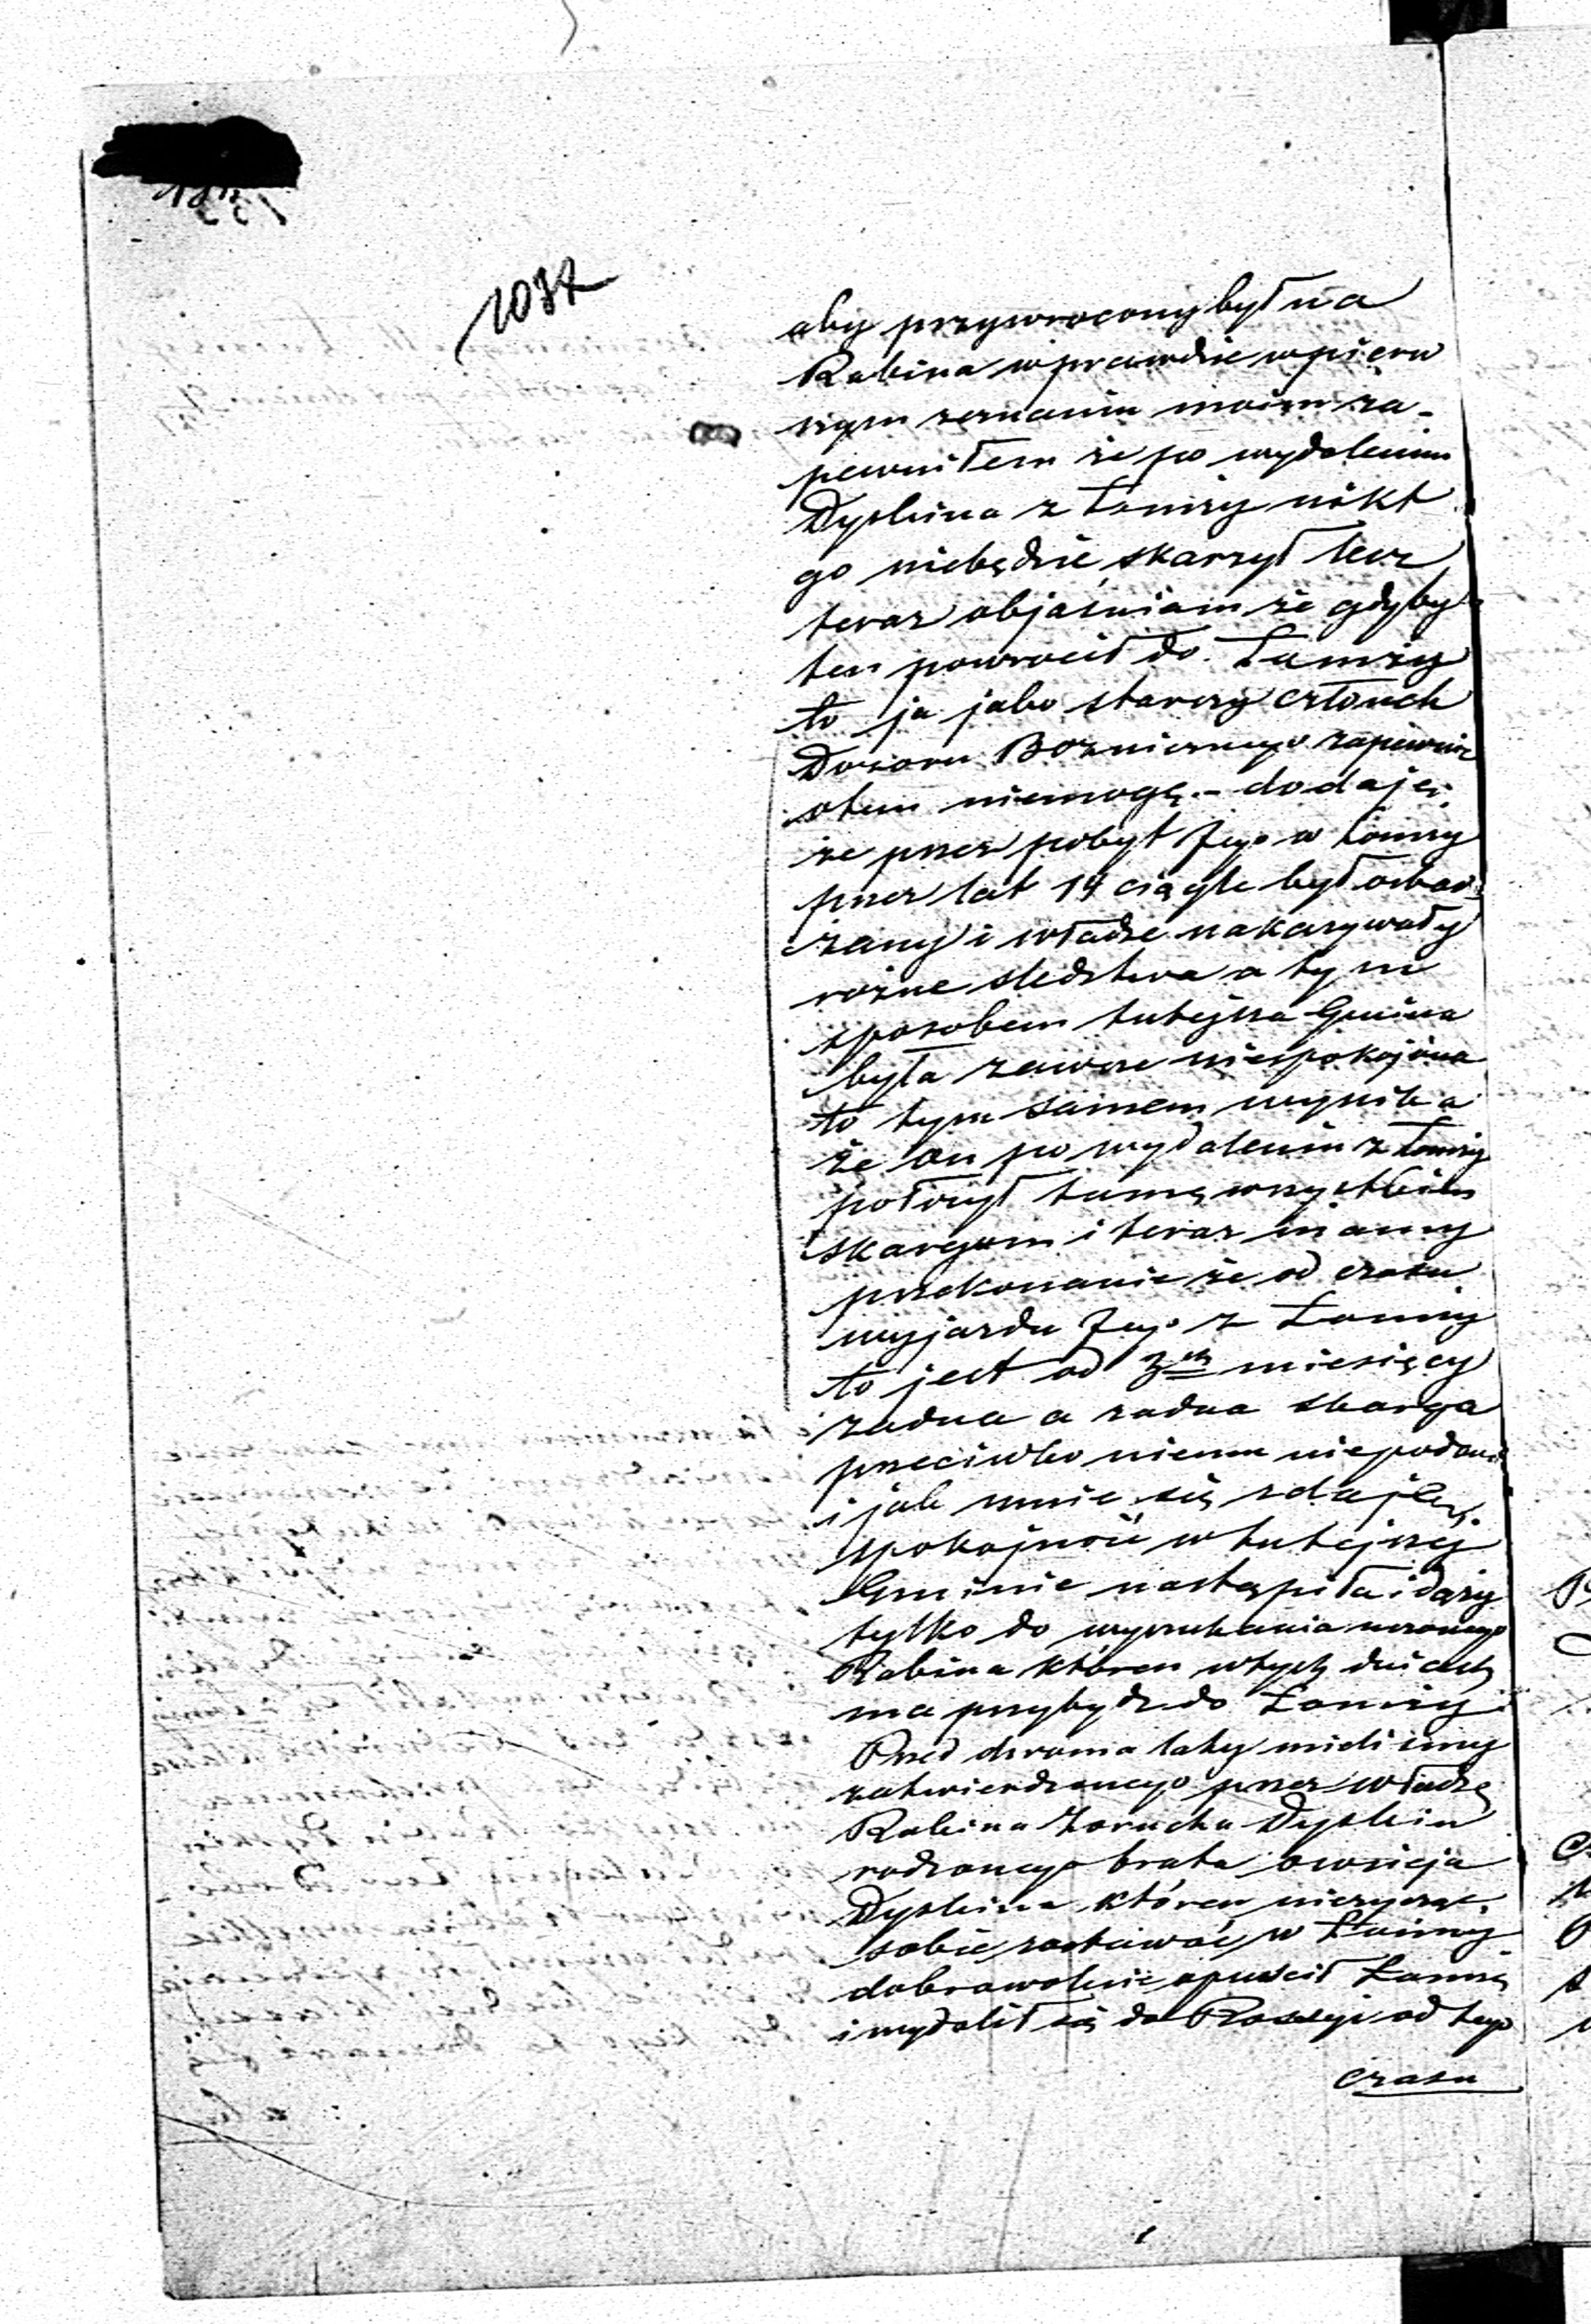 1032
aby przywrocony był na
Rabina wprawdzie wpierw
szym zeznaniu moim za-
pewniłem że po wydaleniu
Dyskina z Łomży nikt
go niebędzie skarzył lecz
teraz objaśniam że gdyby
ten powrócił do Łomży
to ja jako starszy członek
Dozoru Bożniczego zapewnić
otem niemogę.- dodaję
że przez pobyt Jego w Łomży
przez lat 14 ciągle był oskar
żany i władze nakazywały
rożne sledstwa a tym
sposobem tutejsza Gmina
była zawsze niespokojona
to tym samem wynika
że on po wydaleniu z Łomży
położył tamę wszystkim
skargom i teraz mamy
przekonanie że od czasu
wyjazdu Jego z Łomży
to jest od 3ch miesięcy
zadna a zadna skarga
przeciwko niemu niepodana
i jak mnie się zdaje
spokojność w tutejszej
Gminie nastąpiła i dąży
tylko do wyszukania uczonego
Rabina któren wtych dniach
ma przybydz do Łomży
Przed dwoma laty mieli smy
zatwierdzonego przez władzę
Rabina Zorucha Dyskin
rodzonego brata Owsieja
Dyskina któren nieżycząc
sobie zostawać w Łomży
dobrowolnie opuścił Łomżę
i wydalił się do Rossyi od tego
czasu